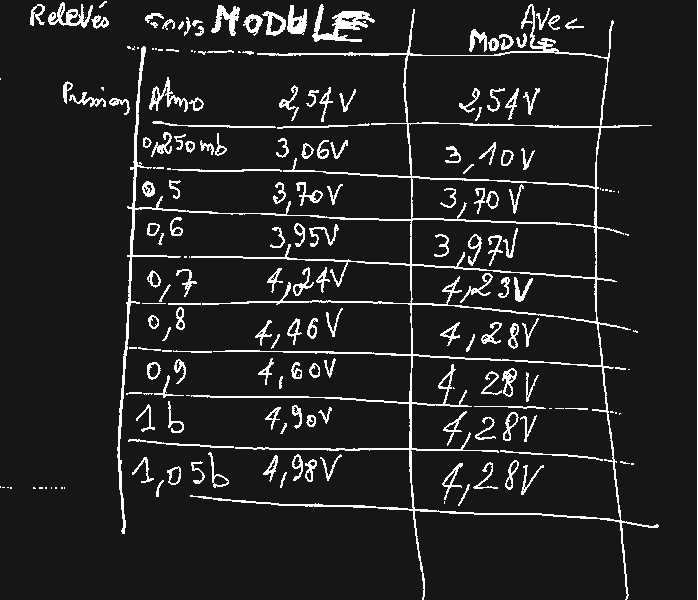 Relevés sans MODULE Avec MODULE
Pression Atmo 2,54V 2,54V
0,250mb 3,06V 3,10V
0,5 3,70V 3,70V
0,6 3,95V 3,97V
0,7 4,24V 4,23V
0,8 4,46V 4,28V
0,9 4,60V 4,28V
1b 4,90V 4,28V
1,05b 4,98V 4,28V